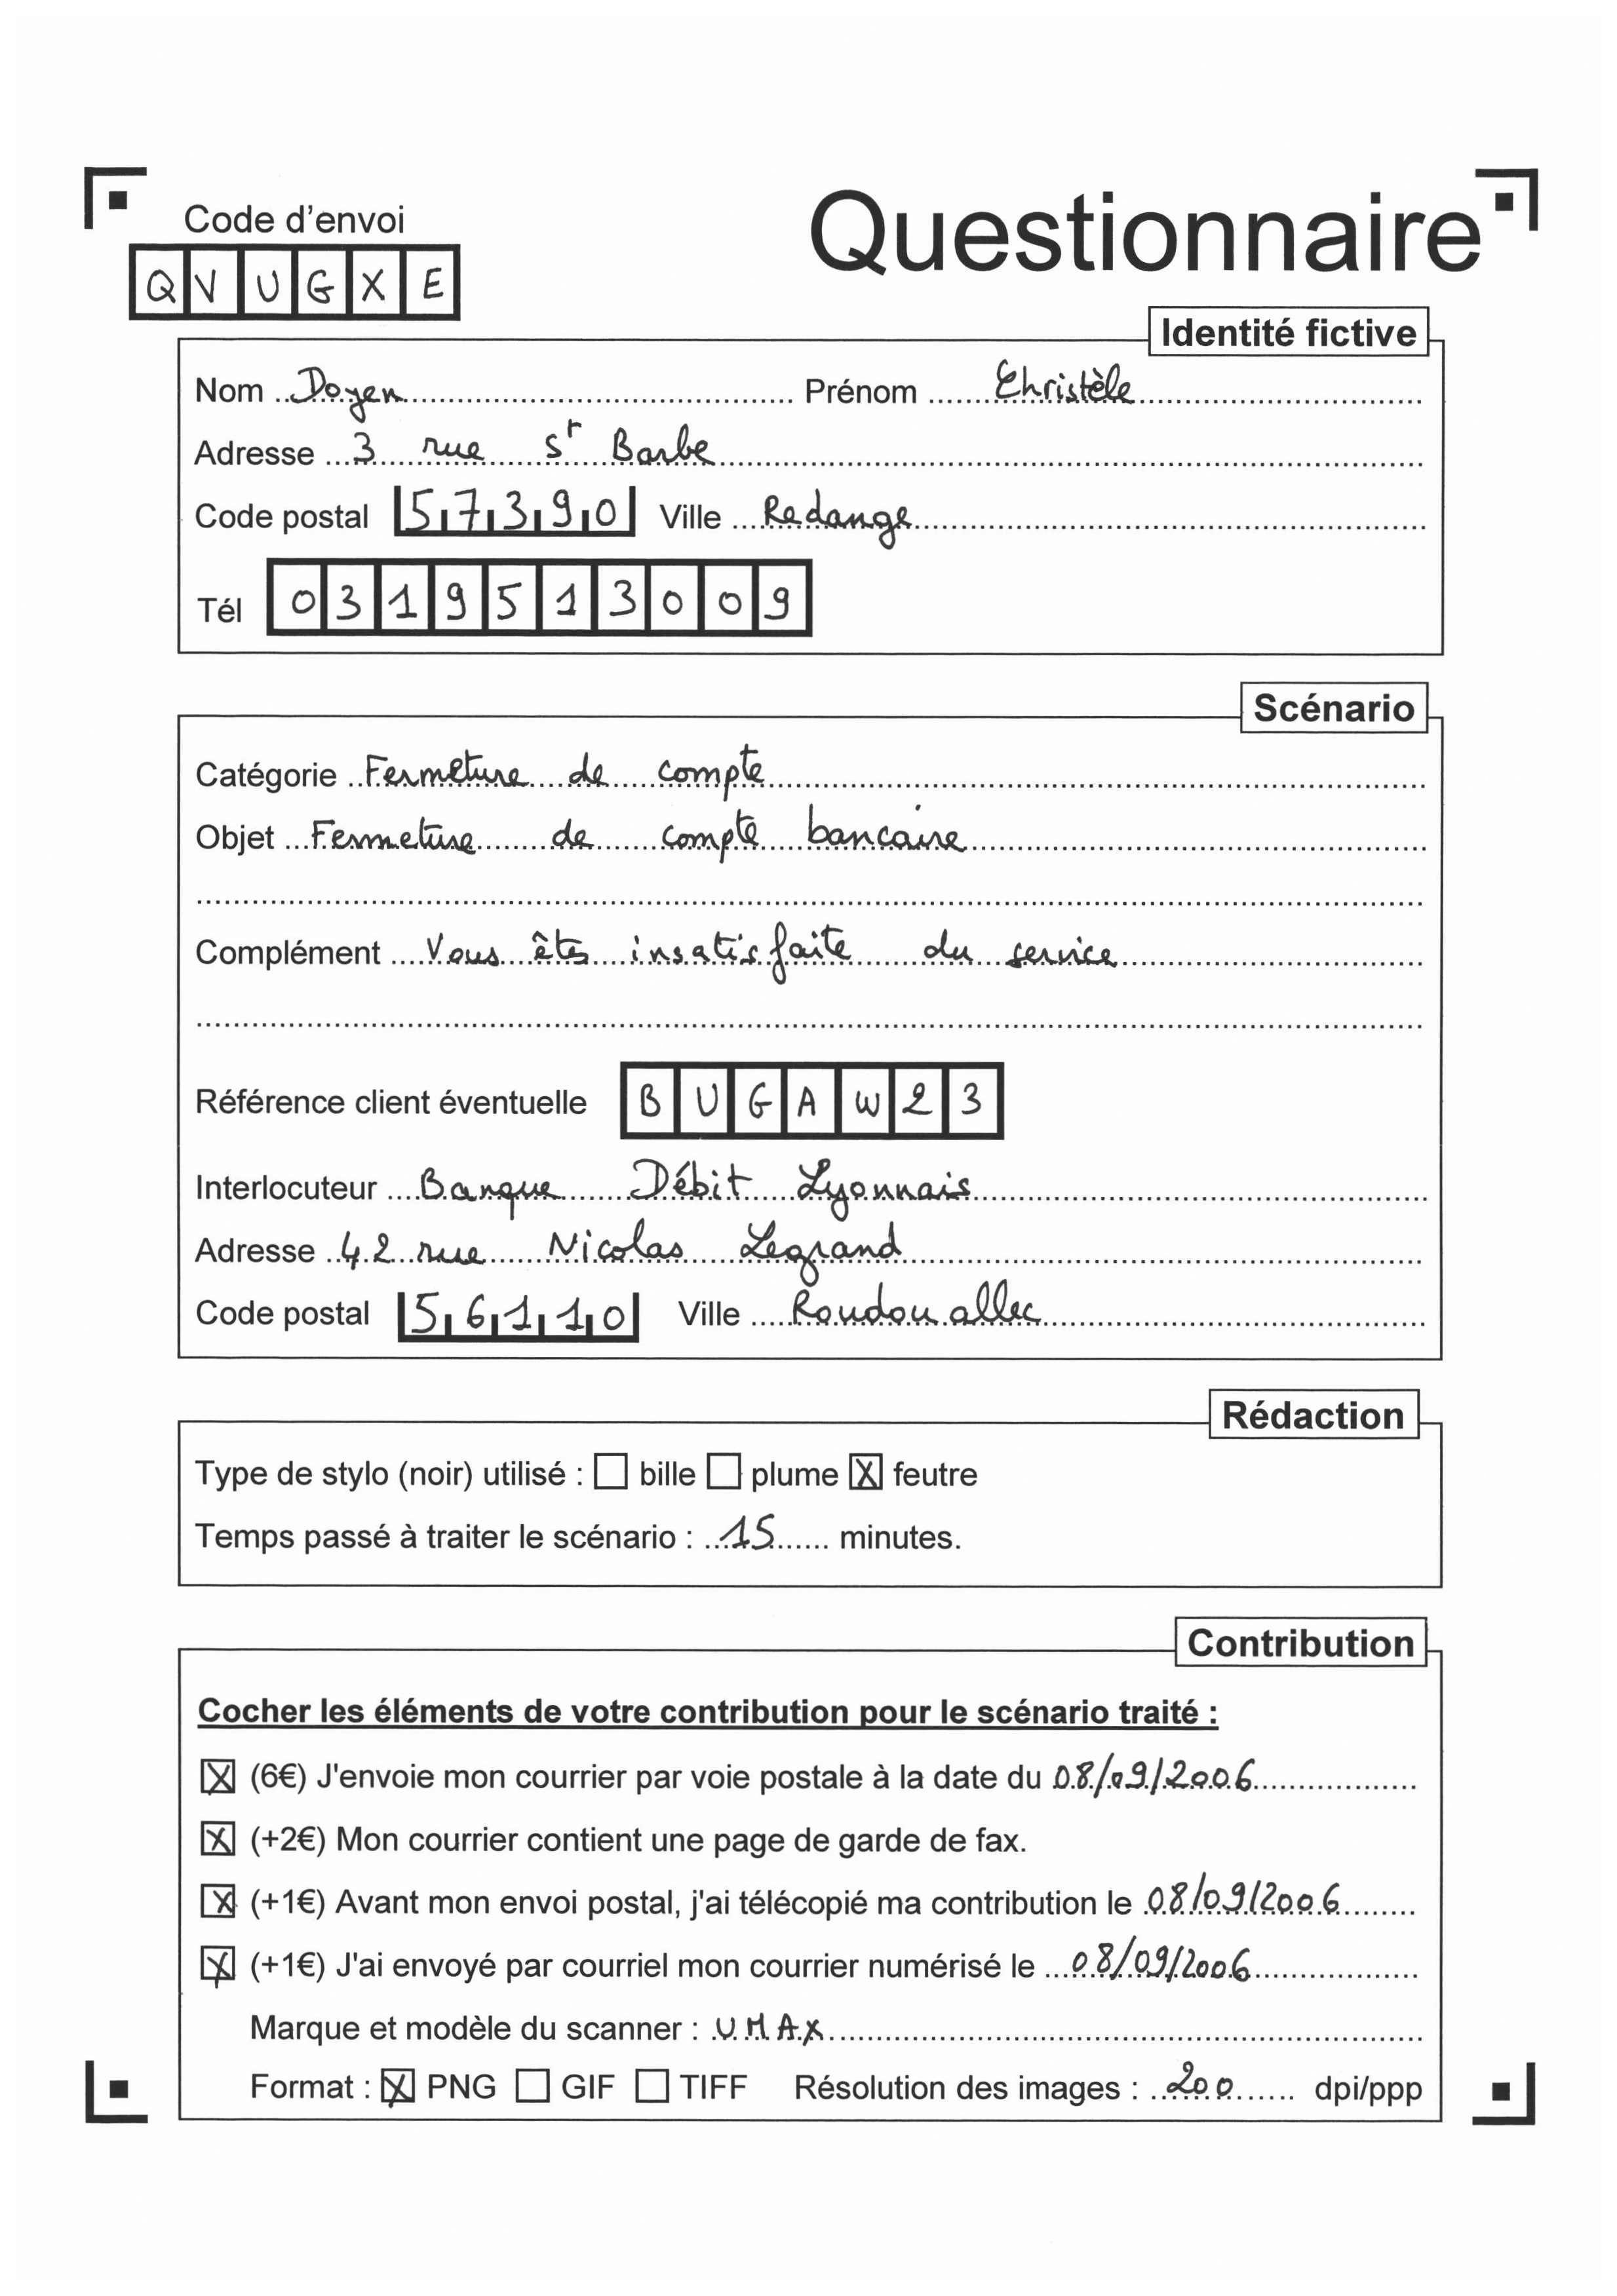 Code d'envoi
Questionnaire
Q V U G X E
Identité fictive
Nom Doyen Prénom Christèle
Adresse 3 rue St Barbe
Code postal 57390 Ville Redange
Tél 0319513009
Scénario
Catégorie Fermeture de compte
Objet Fermeture de compte bancaire
Complément Vous êtes insatisfaite du service
Référence client éventuelle B U G A W 2 3
Interlocuteur Banque Débit Lyonnais
Adresse 42 rue Nicolas Legrand
Code postal 56110 Ville Roudouallec
Rédaction
Type de stylo (noir) utilisé : ☐ bille ☐ plume ☒ feutre
Temps passé à traiter le scénario : 15 minutes.
Contribution
Cocher les éléments de votre contribution pour le scénario traité :
☒ (6€) J'envoie mon courrier par voie postale à la date du 08/09/2006
☒ (+2€) Mon courrier contient une page de garde de fax.
☒ (+1€) Avant mon envoi postal, j'ai télécopié ma contribution le 08/09/2006
☒ (+1€) J'ai envoyé par courriel mon courrier numérisé le 08/09/2006
Marque et modèle du scanner : UMAX
Format : ☒ PNG ☐ GIF ☐ TIFF Résolution des images : 200 dpi/ppp